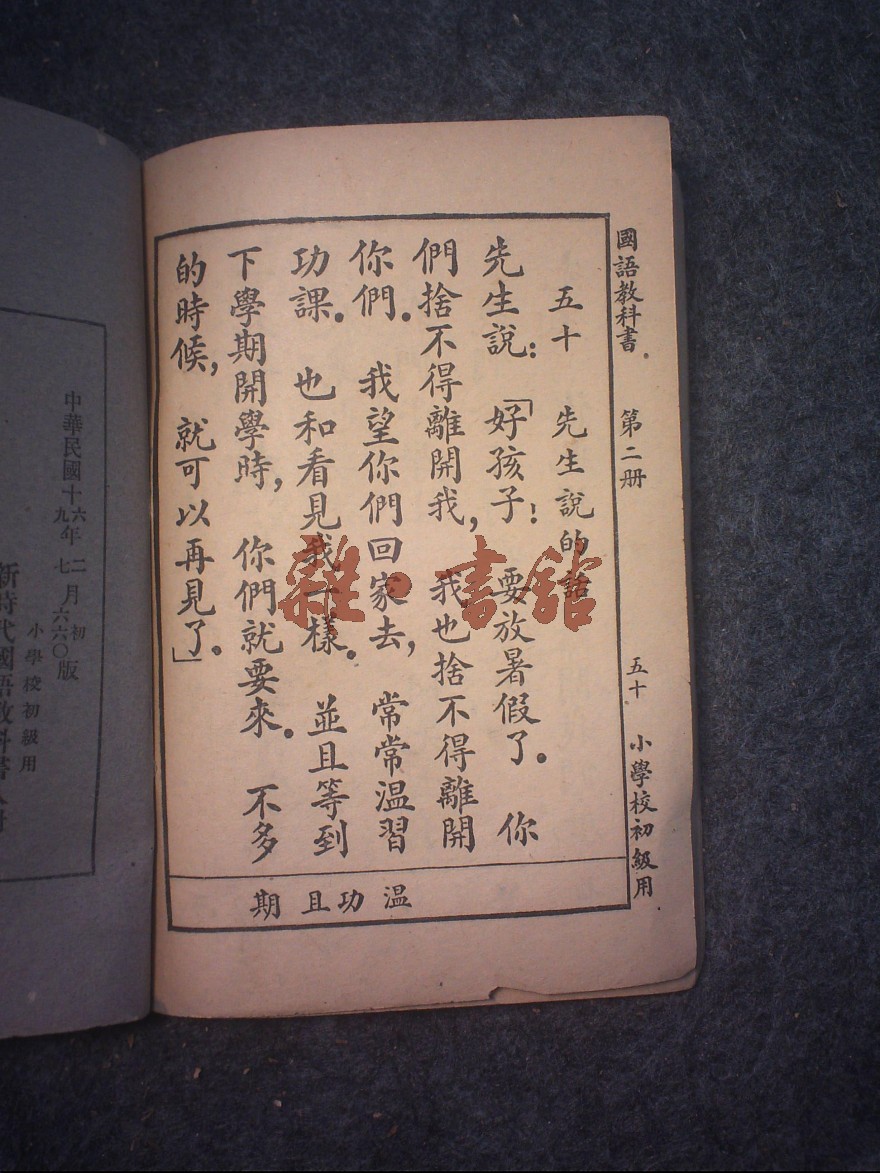 國語教科書 第二册 五十 小學校初級用
五十 先生說的話
先生說：「好孩子！要放暑假了。你
們捨不得離開我，我也捨不得離開
你們。我望你們回家去，常常温習
功課。也和看見我一樣。並且等到
下學期開學時，你們就要來。不多
的時候，就可以再見了。」
温 功 且 期
雜·書館
中華民國十六年二月初版
九 七 六六〇
小學校初級用
新時代國語教科書